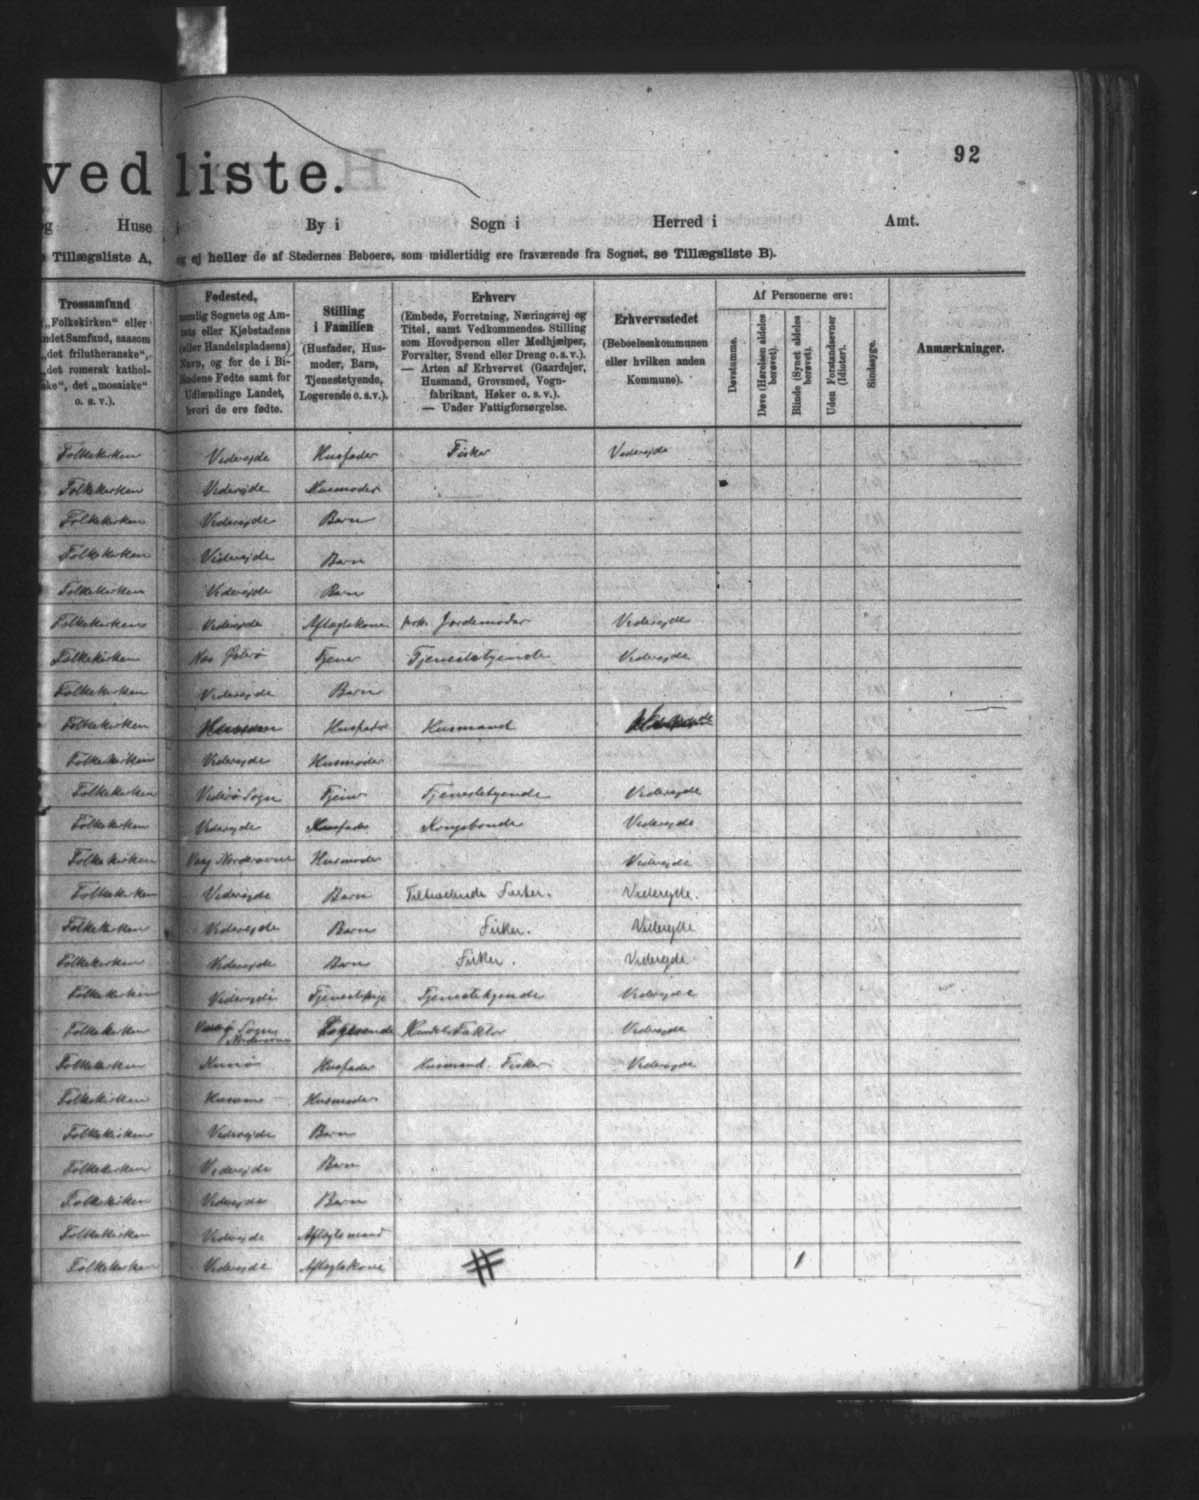 vedliste.
92
g Huse i By i Sogn i Herred i Amt.
Tillægsliste A, og ej heller de af Stedernes Beboere, som midlertidig ere fraværende fra Sognet, se Tillægsliste B).
Trossamfund
„Folkekirken“ eller
andet Samfund, saasom
„det frilutheranske“,
„det romersk kathol-
ske“, det „mosaiske“
o. s. v.).
Fødested,
nemlig Sognets og Am-
tets eller Kjøbstadens
(eller Handelspladsens)
Navn, og for de i Bi-
landene Fødte samt for
Udlændinge Landet,
hvori de ere fødte.
Stilling
i Familien
(Husfader, Hus-
moder, Barn,
Tjenestetyende,
Logerende o. s. v.).
Erhverv
(Embede, Forretning, Næringsvej og
Titel, samt Vedkommendes Stilling
som Hovedperson eller Medhjælper,
Forvalter, Svend eller Dreng o. s. v.).
— Arten af Erhvervet (Gaardejer,
Husmand, Grovsmed, Vogn-
fabrikant, Høker o. s. v.).
— Under Fattigforsørgelse.
Erhvervsstedet
(Beboelseskommunen
eller hvilken anden
Kommune).
Af Personerne ere:
Døvstumme.
Døve (Hørelsen aldeles
berøvet).
Blinde (Synet aldeles
berøvet).
Uden Forstandsevner
(Idioter).
Sindssyge.
Anmærkninger.
Folkekirken Viderejde Husfader Fisker Viderejde
Folkekirken Viderejde Husmoder
Folkekirken Viderejde Barn
Folkekirken Viderejde Barn
Folkekirken Viderejde Barn
Folkekirken Viderejde Aftægtskone Jordemoder Viderejde
Folkekirken Tjener Tjenestetyende Viderejde
Folkekirken Viderejde Barn
Folkekirken Husfader Husmand
Folkekirken Viderejde Husmoder
Folkekirken Viderø Sogn Tjener Tjenestetyende Viderejde
Folkekirken Viderejde Husfader Kongsbonde Viderejde
Folkekirken Vaag Norderøerne Husmoder Viderejde
Folkekirken Viderejde Barn Fisker. Viderejde.
Folkekirken Viderejde Barn Fisker. Viderejde
Folkekirken Viderejde Barn Fisker. Viderejde
Folkekirken Viderejde Tjenestepige Tjenestetyende Viderejde
Folkekirken Sogn Logerende Handels Faktor Viderejde
Folkekirken Kunø Husfader Husmand. Fisker Viderejde
Folkekirken Husmoder
Folkekirken Viderejde Barn
Folkekirken Viderejde Barn
Folkekirken Viderejde Barn
Folkekirken Viderejde Aftægtsmand
Folkekirken Viderejde Aftægtskone # 1